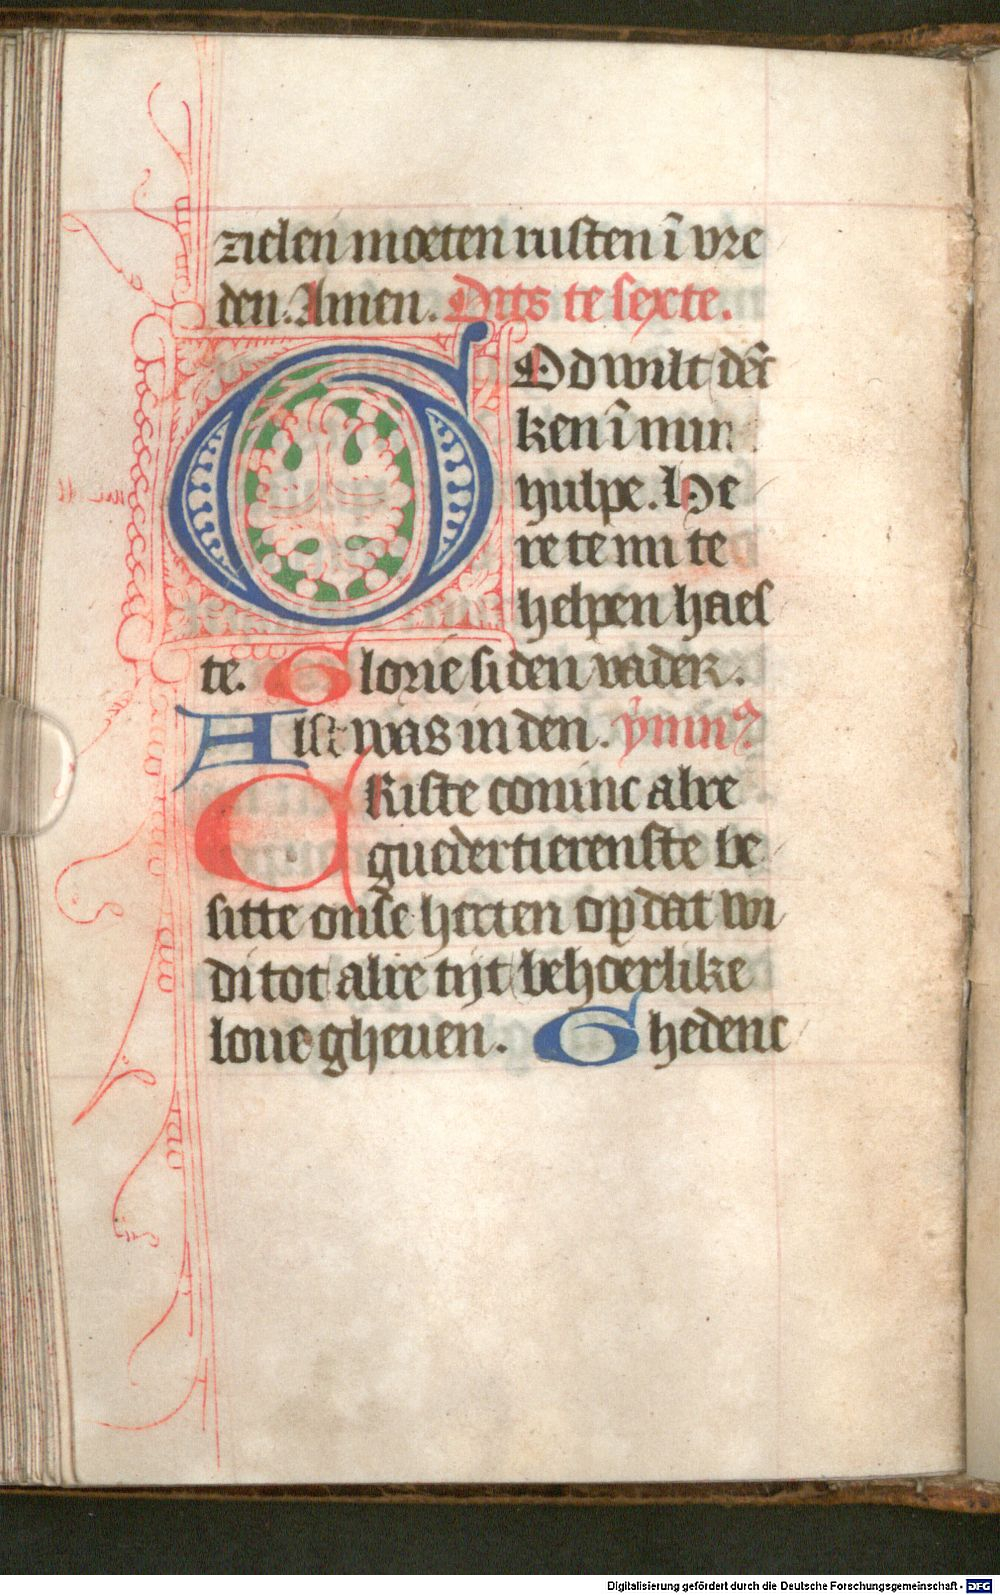 zielen moeten rusten ī vre
den. Amen. Dits te sexte.
God wilt dēc
ken ī miin
hulpe. He
re te mi te
helpen haes
te. Glorie si den vader.
Alst was in den. ymnꝰ
CRiste coninc alre
guedertierenste be
sitte onse herten op dat wi
di tot alre tijt behoerlike
loue gheuen. Ghedenc
Digitalisierung gefördert durch die Deutsche Forschungsgemeinschaft - DFG